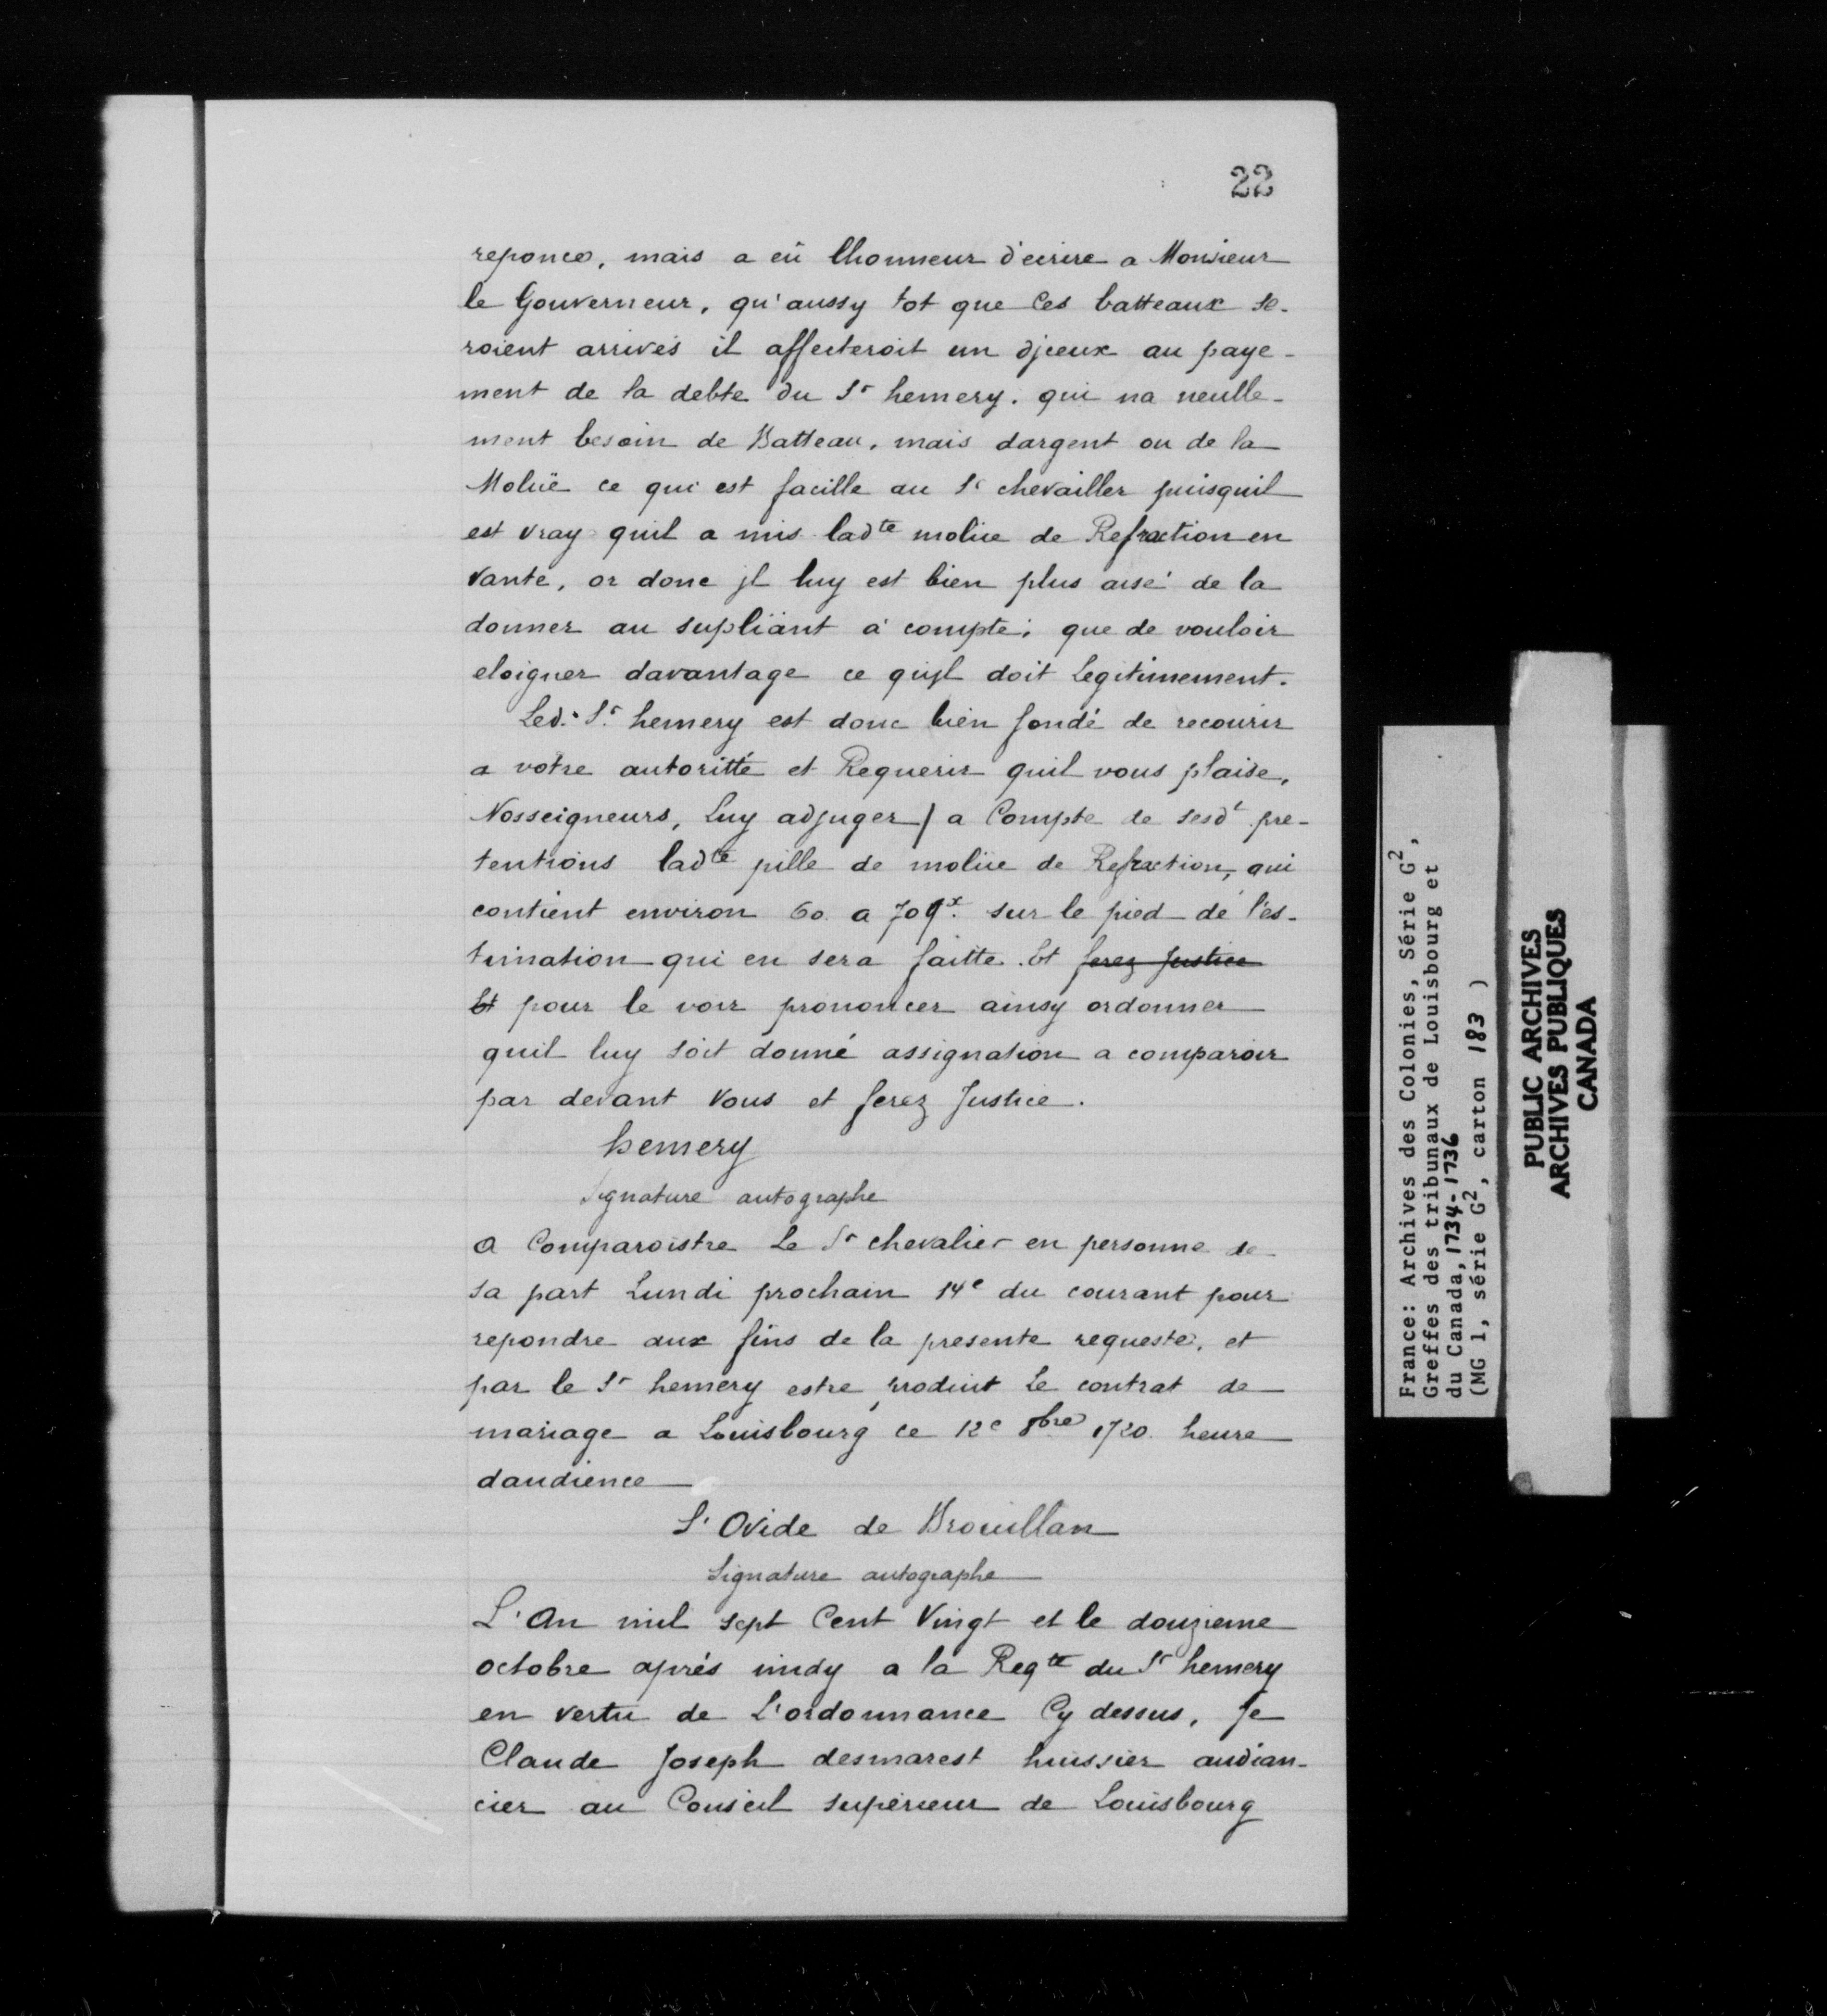 22
reponce, mais a eü lhonneur d'ecrire a Monsieur
le Gouverneur, qu'aussy tot que Ces batteaux se-
roient arrivés il affecteroit un djceux au paye-
ment de la debte du Sr hemery. qui na neulle-
ment besoin de Batteau, mais dargent ou de la
Moliië ce qui est facille au Sr chevailler puisquil
est vray quil a mis ladte moliie de Refraction en
vante, or donc jl luy est bien plus aisé de la
donner au supliant a compte; que de vouloir
eloigner davantage ce quyl doit Legitimement.
Led. Sr. hemery est donc bien fondé de recourir
a votre autoritté et Requerir quil vous plaise,
Nosseigneurs, Luy adjuger / a Compte de sesd. pre-
tentions ladte pille de moliie de Refraction, qui
contient environ 60. a 70 qx. sur le pied de l'es-
timation qui en sera faitte. Et ferez Justice
Et pour le voir prononcer ainsy ordonner
quil luy soit donné assignation a comparoir
par devant Vous et ferez Justice.
hemery
Signature autographe
a Comparoistre Le Sr chevalier en personne de
sa part Lundi prochain 14e du courant pour
repondre aux fins de la presente requeste, et
par le Sr hemery estre produit Le contrat de
mariage a Louisbourg ce 12e 8bre 1720. heure
daudience
S. Ovide de Brouillan
Signature autographe
L'An mil sept Cent Vingt et le douzieme
octobre aprés midy a la Reqte du Sr hemery
en vertu de L'ordonnance Cy dessus, Je
Claude Joseph desmarest huissier audian-
cier au Conseil superieur de Louisbourg
France: Archives des Colonies, Série G2,
Greffes des tribunaux de Louisbourg et
du Canada, 1734-1736
(MG 1, série G2, carton 183 )
PUBLIC ARCHIVES
ARCHIVES PUBLIQUES
CANADA